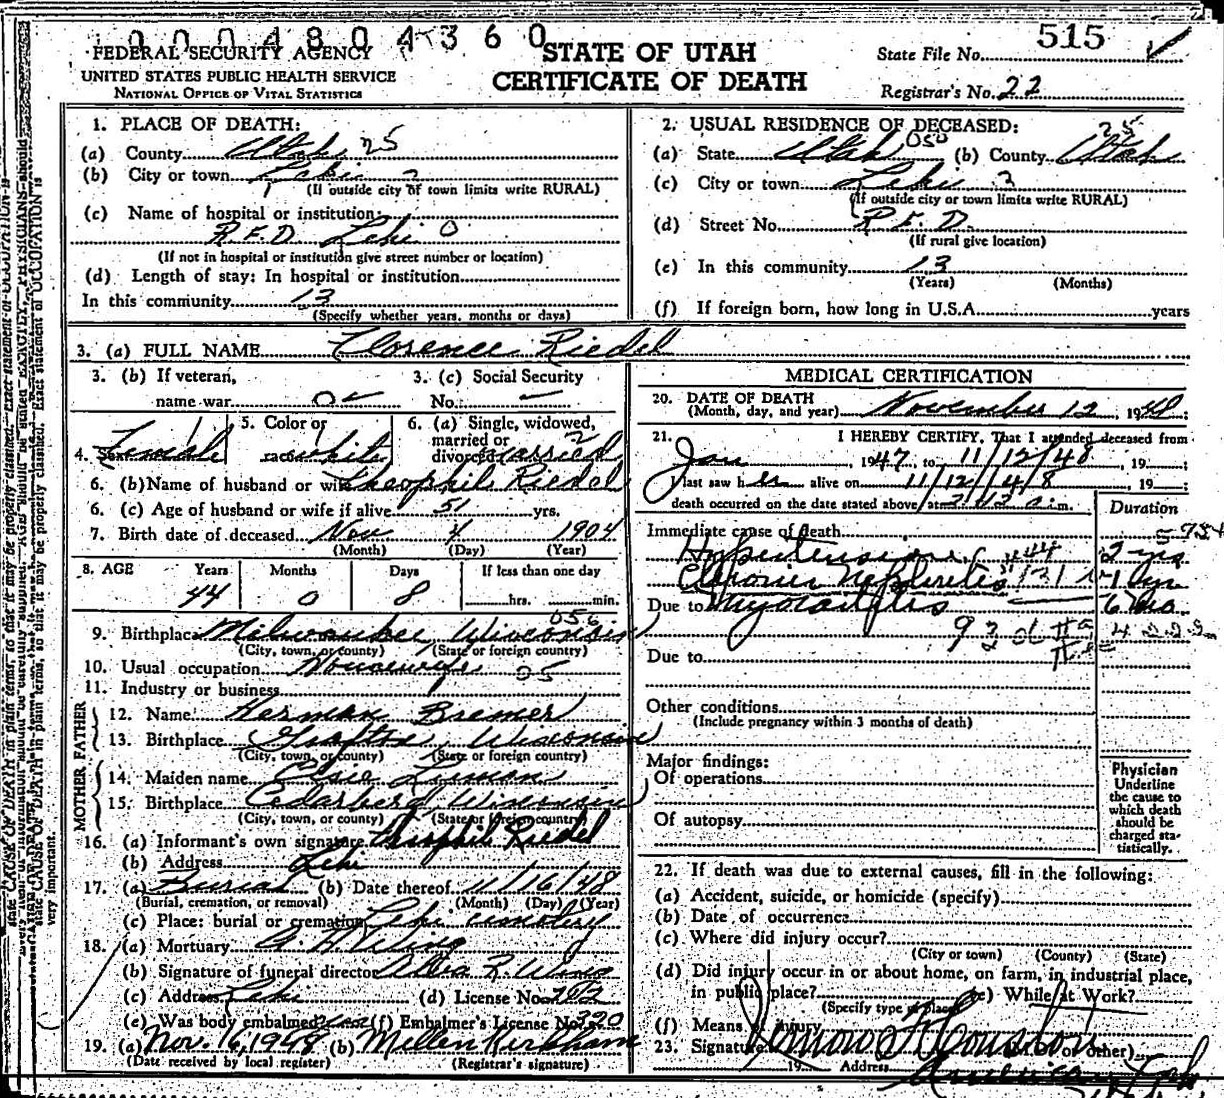 0004804360
FEDERAL SECURITY AGENCY
UNITED STATES PUBLIC HEALTH SERVICE
NATIONAL OFFICE OF VITAL STATISTICS
STATE OF UTAH
CERTIFICATE OF DEATH
State File No. 515
Registrar's No. 22
1. PLACE OF DEATH:
(a) County Utah 25
(b) City or town Lehi
(If outside city or town limits write RURAL)
(c) Name of hospital or institution:
R.F.D. Lehi 0
(If not in hospital or institution give street number or location)
(d) Length of stay: In hospital or institution
In this community 13
(Specify whether years, months or days)
2. USUAL RESIDENCE OF DECEASED:
(a) State Utah 050 (b) County Utah 25
(c) City or town Lehi 3
(If outside city or town limits write RURAL)
(d) Street No. R.F.D.
(If rural give location)
(e) In this community 13
(Years) (Months)
(f) If foreign born, how long in U.S.A. years
3. (a) FULL NAME Florence Riedel
3. (b) If veteran,
name war
3. (c) Social Security
No. —
4. Sex Female
5. Color or
race White
6. (a) Single, widowed,
married or
divorced Married 2
6. (b) Name of husband or wife Theophil Riedel
6. (c) Age of husband or wife if alive 51 yrs.
7. Birth date of deceased Nov 4 1904
(Month) (Day) (Year)
8. AGE Years Months Days If less than one day
44 0 8 hrs. min.
056
9. Birthplace Milwaukee Wisconsin
(City, town, or county) (State or foreign country)
10. Usual occupation Housewife 05
11. Industry or business
FATHER
12. Name Herman Bremer
13. Birthplace Grafton Wisconsin
(City, town, or county) (State or foreign country)
MOTHER
14. Maiden name
15. Birthplace Cedarberg Wisconsin
(City, town, or county) (State or foreign country)
16. (a) Informant's own signature Theophil Riedel
(b) Address Lehi
17. (a) Burial (b) Date thereof 11/16/48
(Burial, cremation, or removal) (Month) (Day) (Year)
(c) Place: burial or cremation Lehi cemetery
18. (a) Mortuary
(b) Signature of funeral director
(c) Address Lehi (d) License No.
(e) Was body embalmed yes (f) Embalmer's License No. 320
19. (a) Nov. 16, 1948 (b) Mellen Kirkham
(Date received by local register) (Registrar's signature)
MEDICAL CERTIFICATION
20. DATE OF DEATH
(Month, day, and year) November 12, 1948;
21. I HEREBY CERTIFY, That I attended deceased from
Jan, 1947, to 11/12/48, 19;
I last saw her alive on 11/12/48, 19;
death occurred on the date stated above at 2:12 a.m.
Duration
Immediate cause of death
Hypertension 2 yrs
Chronic Nephritis 131 1 yr
Due to Myocarditis 6 mo
93
Due to
Other conditions
(Include pregnancy within 3 months of death)
Major findings:
Of operations
Of autopsy
Physician
Underline
the cause to
which death
should be
charged sta-
tistically.
22. If death was due to external causes, fill in the following:
(a) Accident, suicide, or homicide (specify)
(b) Date of occurrence
(c) Where did injury occur?
(City or town) (County) (State)
(d) Did injury occur in or about home, on farm, in industrial place,
in public place? (e) While at Work?
(Specify type of place)
(f) Means of injury
23. Signature (M.D. or other)
19 Address American